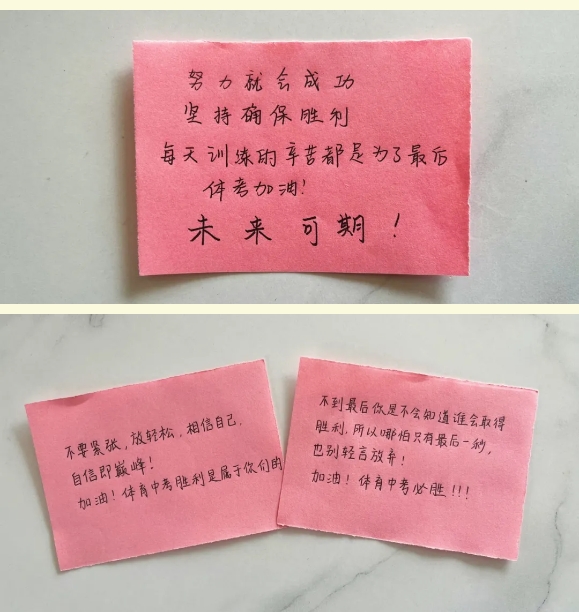 努力就会成功
坚持确保胜利
每天训练的辛苦都是为了最后
体考加油!
未来可期!
不要紧张,放轻松,相信自己,
自信即巅峰!
加油!体育中考胜利是属于你们的
不到最后你是不会知道谁会取得
胜利,所以哪怕只有最后一秒,
也别轻言放弃!
加油!体育中考必胜!!!